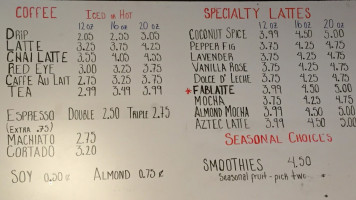 COFFEE ICED OR HOT
12 oz 16 oz 20 oz
DRIP 2.05 2.55 3.05
LATTE 3.25 3.75 4.25
CHAI LATTE 3.55 4.05 4.55
RED EYE 3.00 3.25 3.75
CAFFE AU LAIT 2.75 3.25 3.75
TEA 2.99 3.49 3.99
ESPRESSO DOUBLE 2.50 TRIPLE 2.75
(EXTRA .75)
MACHIATO 2.75
CORTADO 3.20
SOY 0.50 ¢ ALMOND 0.75 ¢
SPECIALTY LATTES
12 oz 16 oz 20 oz
COCONUT SPICE 3.99 4.50 5.00
PEPPER FIG 3.75 4.25 4.75
LAVENDER 3.75 4.25 4.75
VANILLA ROSE 3.75 4.25 4.75
DOLCE D' LECHE 3.75 4.25 4.75
* FABLATTE 3.99 4.50 5.00
MOCHA 3.75 4.25 4.75
ALMOND MOCHA 3.99 4.50 5.00
AZTEC LATTE 3.99 4.50 5.00
SEASONAL CHOICES
SMOOTHIES 4.50
Seasonal fruit - pick two